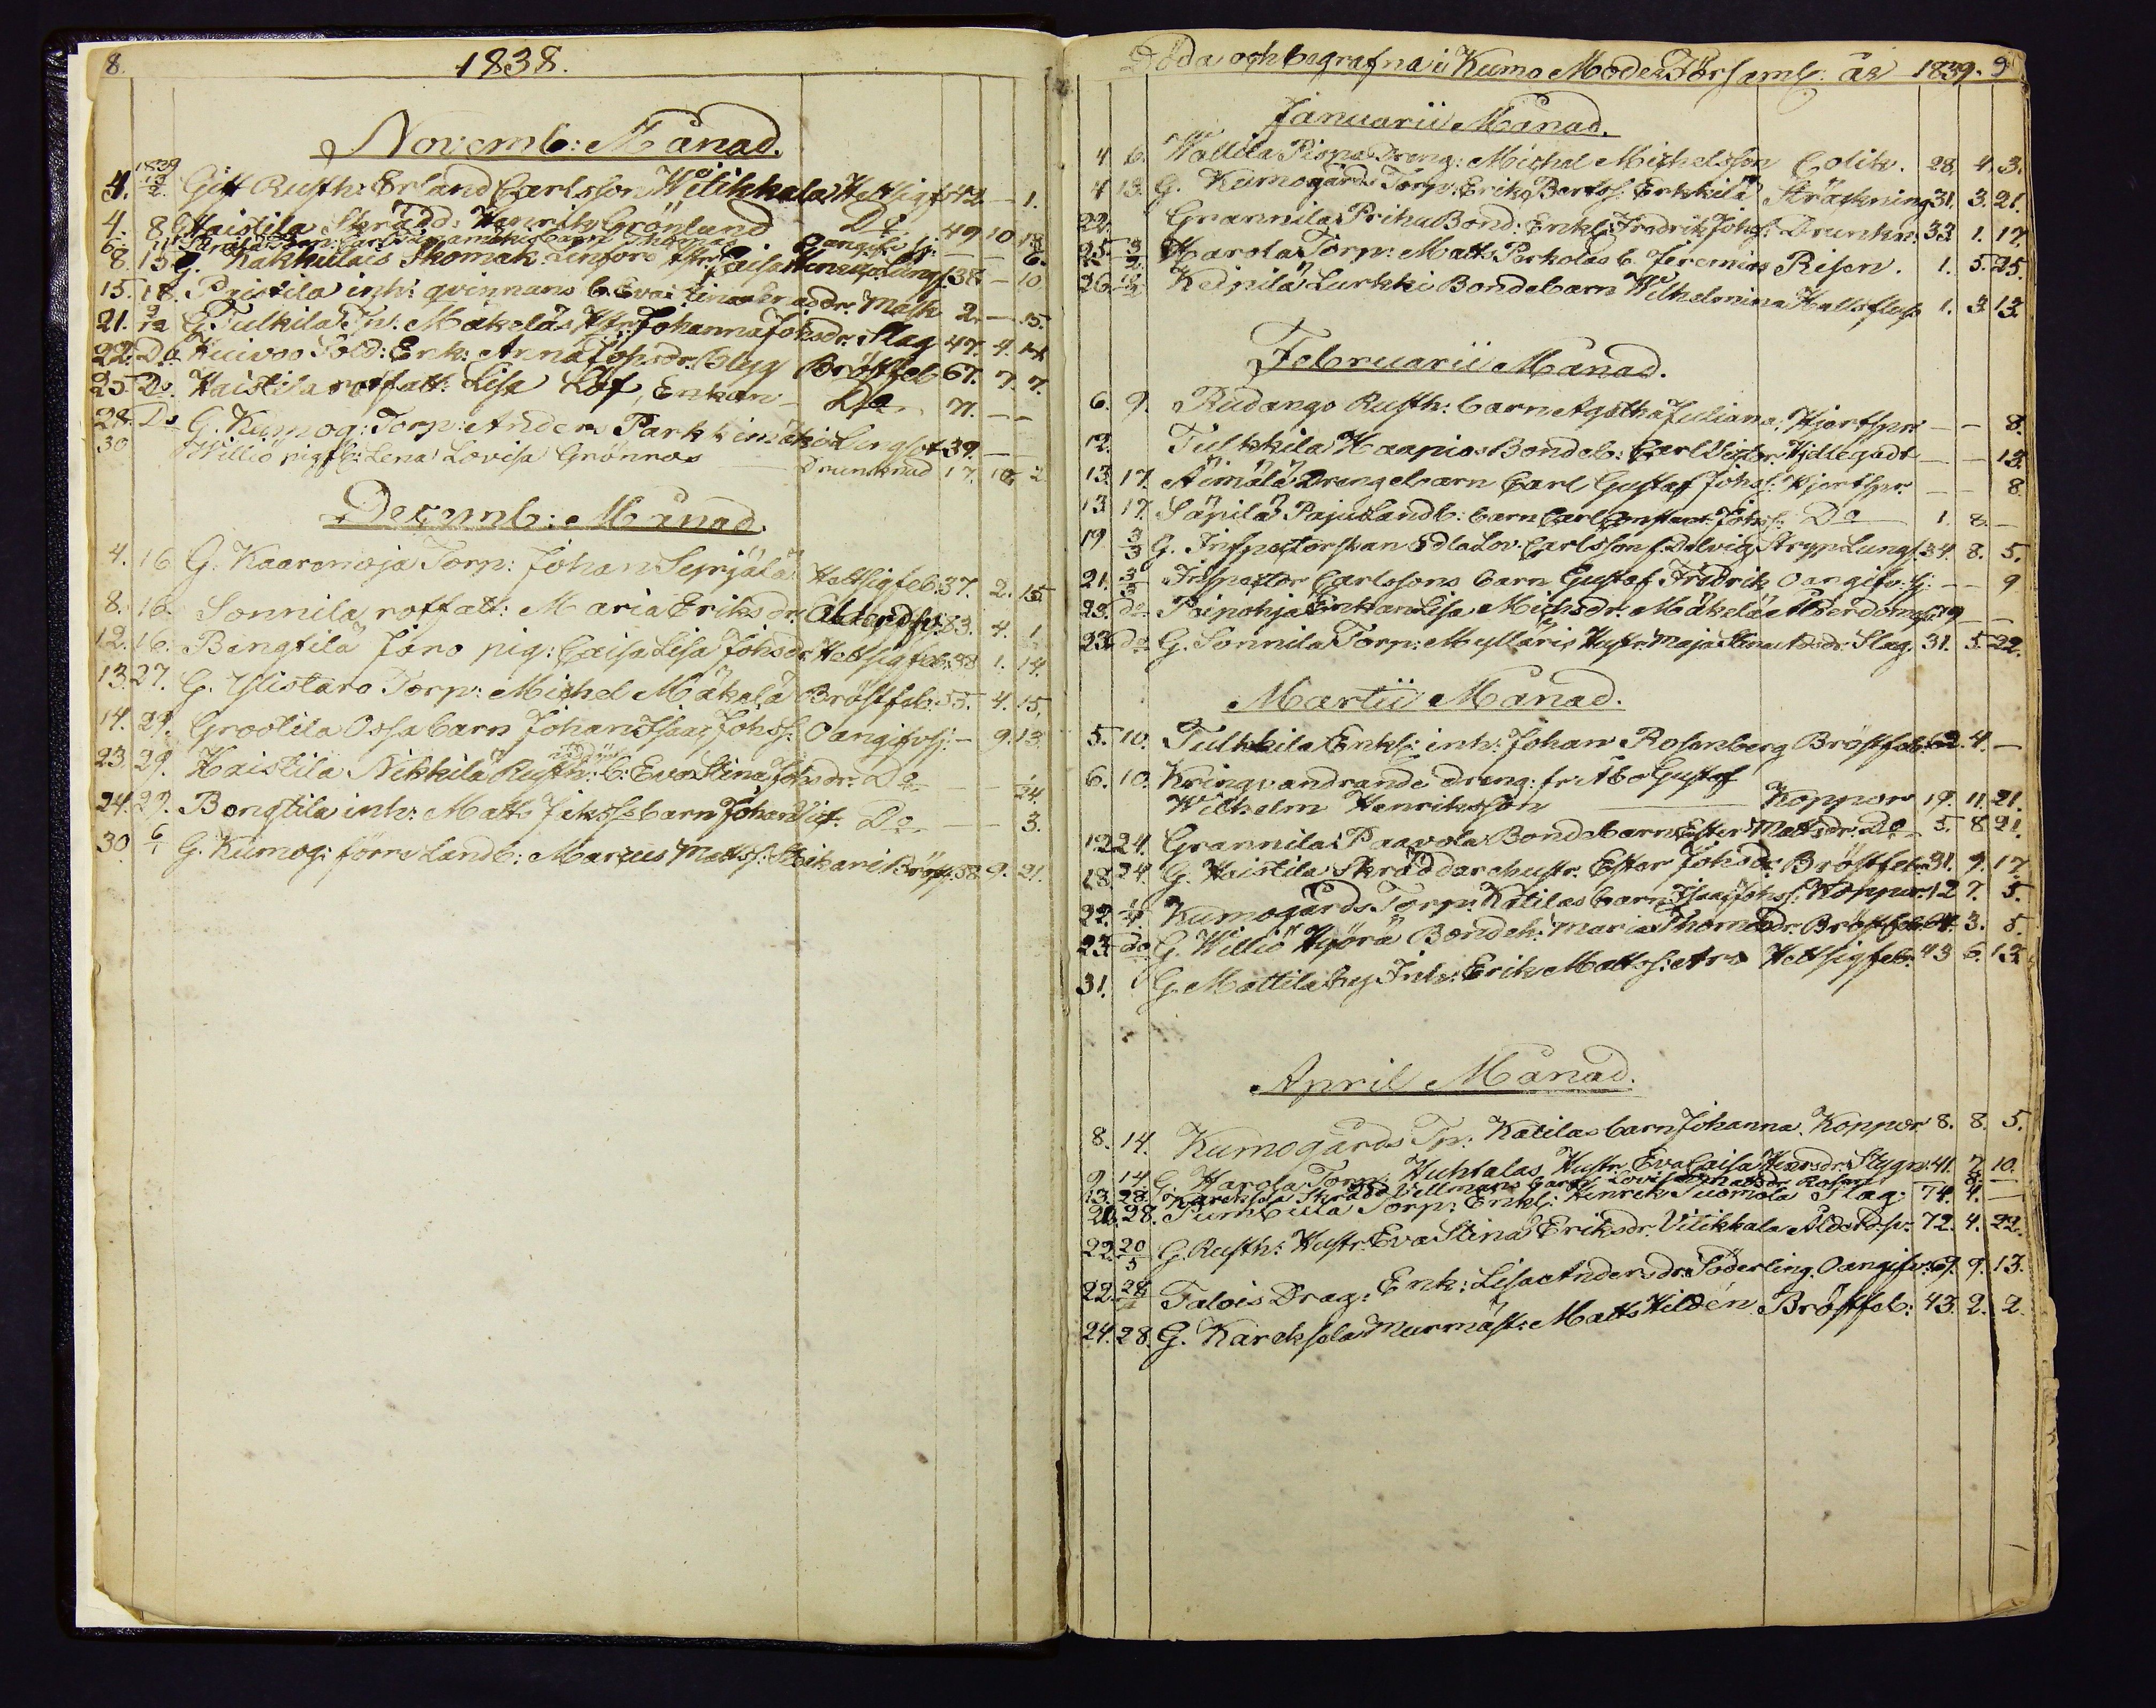 8.
1838.
Novemb: Månad.
4. 1839 13/2 Gift Rusth: Erland Carlsson Witikkala Hettsigf. 42 — 1.
4. 8. Haistila Skrädd: Henrik Grönlund Do. 49 10 18
6. 11 Carl barn Thomas Oangifv. sj: — — 6.
8. 15. G. Kakkulais Skomak. Linfors Hstr: Caisa Lungs. 38 — 10.
15. 18. Pristila inh: qvinnans b. Eva Stina Mask 2. — 15.
21. 2/12 G. Tulkila Tp: Mäkeläs Hstr: Johanna Johsdr. Slag 47. 4. 14
22. Do. Huivoo Sold: Enk: Anna Johsdr. Blegg Bröstfeb 67. 7. 7.
25. Do. Haistila rotfatt: Lisa Löf, Enkan — Do 71. — —
28. Do G. Kumog: Torp: Anders Parkkimäki Lungsot 39. — —
30 Willio pig fl: Lena Lovisa Grönroos Drunknad 17. 10. 2.
Decemb: Månad.
4. 16 G. Kaaronoja Torp: Johan Seppälä Hettsigfeb. 37. 2. 15.
8. 16. Sonnila rotfatt: Maria Eriksdr. Ålderdsv. 83. 4. 1.
12. 16. Bengtilä Jaro pig: Caisa Lisa Johsdr. Hettsigfeb. 38 1. 14.
13. 27. G. Ylistaro Torp: Michel Mäkelä Bröstfeb: 55. 4. 15.
14. 29. Groótila Ossa barn Johan Isaac Johss. Oangifv sj: — 9. 13.
23. 29. Haistila Nikkilä Rusth: b: Eva Stina Johsdr. Do — — 24.
24. 29. Bengtila inh: Matts barn Johan Vict. Do — — 3.
30 6/1 G. Kumog: förre Landb: Marcus Mattss: Stikari Bröstf. 58 9. 21.
Döda och begrafna i Kumo Moder Församl: år 1839. 9
Januarii Månad.
4 6. Wallila Pispa Dreng: Michel Michelsson Colik. 28. 4. 3.
4 13. G. Kumogårds Torp: Erik Bertss. Erkkilä Sträckning 31. 3. 21.
22. Grannila Prihu Bond: Enkl: Fredrik Johss: Drunkn: 33 1. 17.
25. 3/2 Harola Torp: Matts Perkolas b. Jeremias Risen. 1. 5. 25.
26. Keipilä Lurkki Bondebarn Wilhelmina Hallsfluss 1. 3 13.
Februarii Månad.
6. 9. Rudango Rusth: barn Agatha Juliana: Hjertspr — — 8.
12. Tulkkila Haapios Bondeb: Carl Victor. — — 13.
13. 17. Äimälä Drengebarn Carl Gustaf Johss: Hjertspr. — — 8.
13. 17. Säpilä Pajus Landb: barn Carl Constant: Johss: Do 1. 8. —
19 3/3 G. Inspectorskan Edla Lov: Carlsson f. Dalvig Lungs. 34. 8. 5.
21. 3/3 Inspector Carlssons barn Gustaf Fredrik Oangifv. sj: — — 9
23. do. Peipohja Enkan Lisa Michsdr. Mäkelä Ålderdoms. 79 — —
23. do. G. Sonnila Torp: Myllaris Hustr. Maja Stina Slag. 31. 5. 22.
Martii Månad.
5. 10. Tulkkila Enkl: inh: Johan Rosenberg Bröstfeb: 62. 4. —
6. 10. Kringvandrande dreng: fr: Åbo Gustaf
Wilhelm Henriksson Koppor 19. 11. 21.
12. 24. Grannila Paavola Bondebarn Ester Mattsdr. Do 5. 8 21.
18. 24. G. Haistila Skräddarehustr. Ester Johsdr. Bröstfeb. 31. 9. 17.
22. 1/4 Kumogårds Torp: Katilas barn Isaac Johss. Koppor 12 7. 5.
23. do. G. Willio Hyörä Bondeh: Maria Thomsdr. Bröstfeb. 64. 3. 5.
31. G. Mattila by Inh: Erik Mattss: Aro Hettsigfeb: 43 6. 13
April Månad.
8. 14. Kumogårds Tp: Katilas barn Johanna. Koppor 8. 8. 5.
9. 14. G. Harola Torp: Huhtalas Hustr. Eva Caisa Henrsdr. Stygn: 41. 7. 10.
13. 28. Kareksela Skrädd. Vellmans barn Lovisa Rosen 8. —
20. 28. Tumbilla Torp: Enkl: Hinrik Tuomola Slag: 74. 4. —
22. 20/5 G. Rusth: Hustr. Eva Stina Eriksdr. Vitikkala Ålderdsv. 72. 4. 22.
22. 28/4 Talois Drag: Enk: Lisa Andersdr. Söderling. Oangifv: 69. 9. 13.
24. 28. G. Kareksela Murmäst: Matts Hildén Bröstfeb: 43. 2. 2.